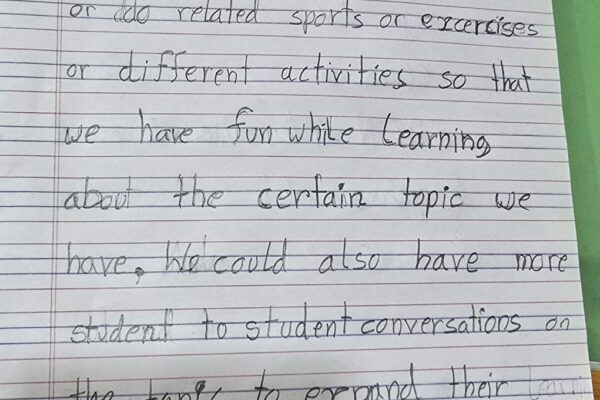 or do related sports or excercises
or different activities so that
we have fun while learning
about the certain topic we
have. We could also have more
student to student conversations on
the to expand their